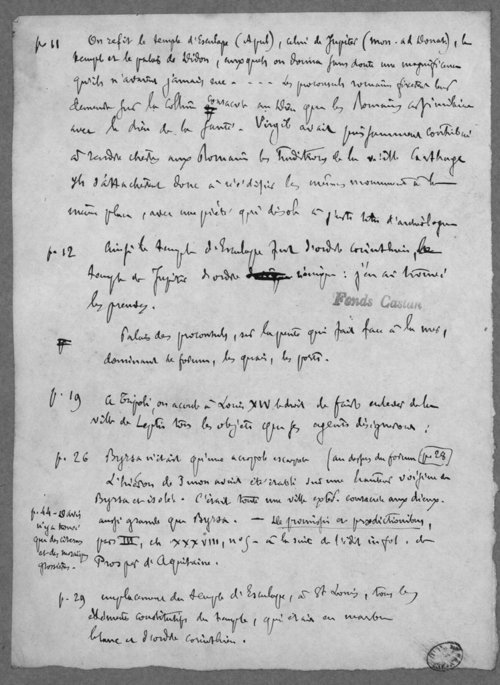 p. 11 On refit le temple d'Esculape (Apul), celui de Jupiter (mon. ad Donat), le
temple et le palais de Didon, auxquels on donna sans doute une magnificence
qu'ils n'avaient jamais eue - . . . Les proconsuls romains fixèrent leur
demeure sur la colline consacrée au Dieu que les Romains assimilaient
avec le dieu de la Santé. Virgile avait puissamment contribué
à rendre chères aux Romains les traditions de la vieille Carthage
Ils s'attachèrent donc à réédifier les mêmes monuments à la
même place, avec une piété qui désole à juste titre d'archéologue
p. 12 Ainsi le temple d'Esculape fut d'ordre corinthien, le
temple de Jupiter d'ordre ionique : j'en ai trouvé
les preuves.
Fonds Castan
Palais des proconsuls, sur la pente qui fait face à la mer,
dominant le forum, les quais, les ports.
p. 19 A Tripoli, on accorde à Louis XIV le droit de faire enlever de la
ville de Leptis tous les objets que ses agents désigneront :
p. 26 Byrsa n'était qu'une acropole escarpée (au dessus du forum p. 28
L'hiéron de Junon avait été établi sur une hauteur voisine de
Byrsa et isolée. C'était toute une ville consacrée aux dieux.
aussi grande que Byrsa. — De promissis et praedictionibus,
pars III, ch XXXVIII, n° 5 - à la suite de l'édit. in fol. de
Prosper d'Aquitaine.
p. 44 - Davis
n'y a trouvé
que des citernes
et des mosaïques
grossières.
p. 29 emplacement du temple d'Esculape, à St Louis, tous les
éléments constitutifs du temple, qui était en marbre
blanc et d'ordre corinthien.